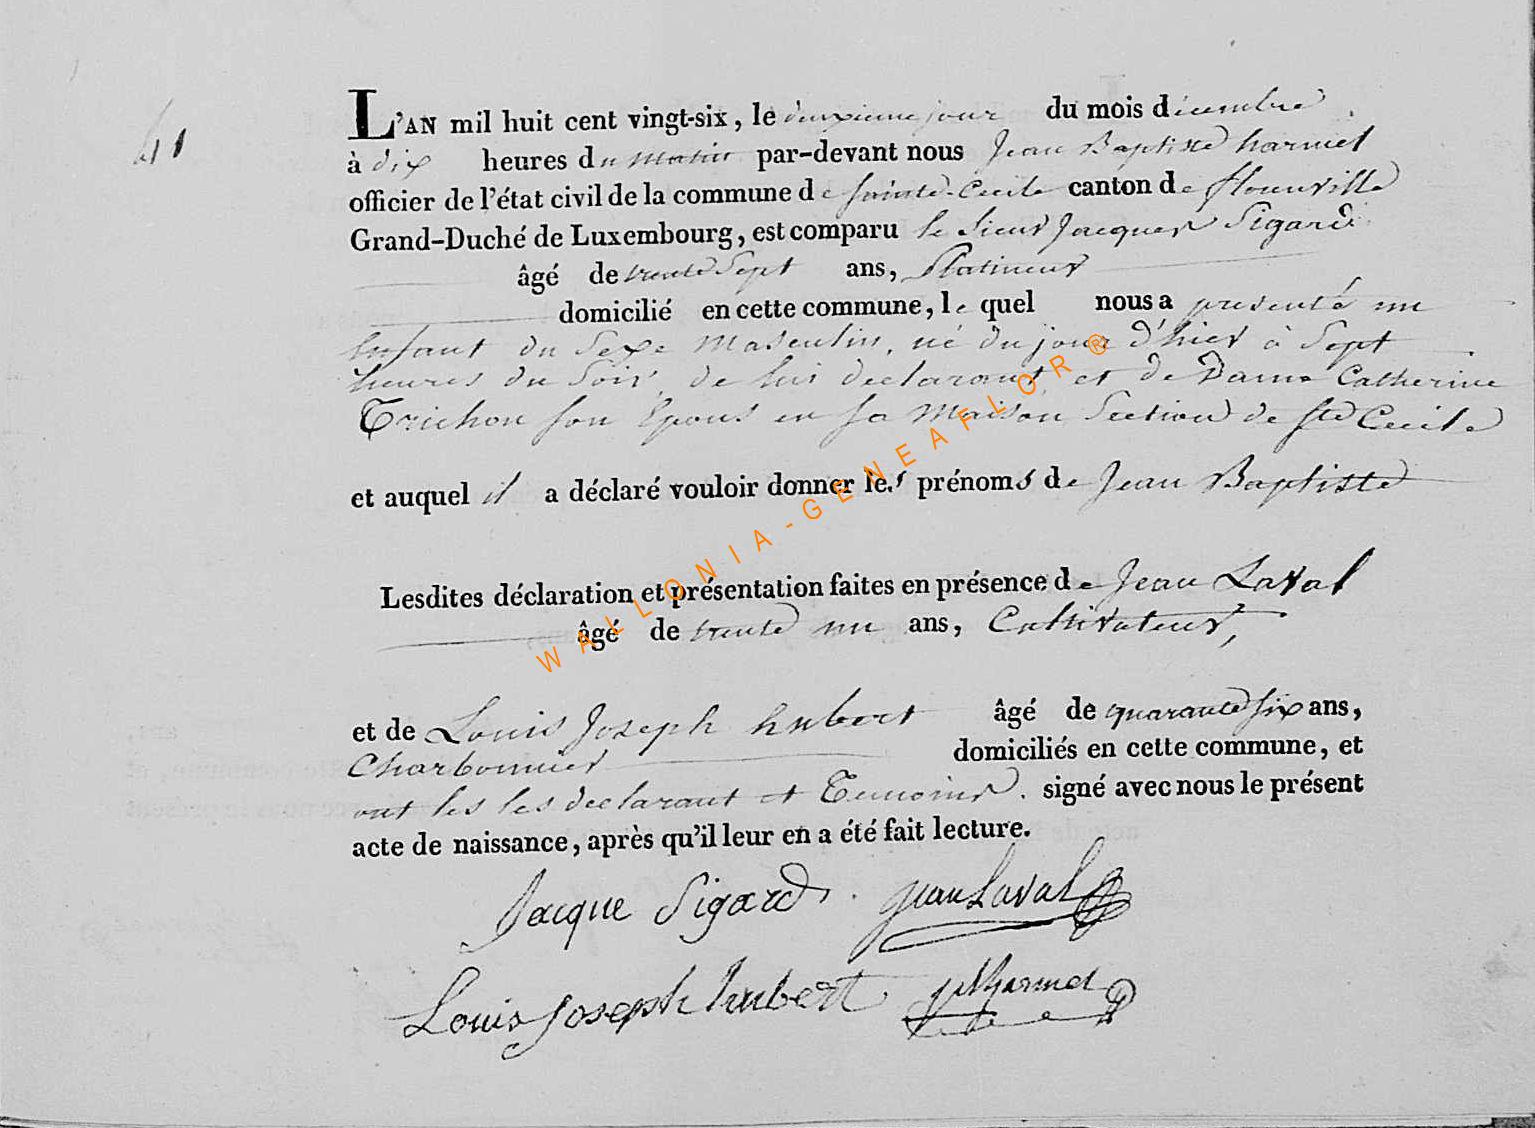 41
L'AN mil huit cent vingt-six, le deuxieme jour du mois decembre
à dix heures du matin par-devant nous Jean Baptiste harmel
officier de l'état civil de la commune de Sainte-Cecile canton de florenville
Grand-Duché de Luxembourg, est comparu le Sieur Jacques Sigard
âgé de trente Sept ans, Platineur
domicilié en cette commune, le quel nous a presenté un
Enfant du Sexe Masculin, né du jour d'hier à Sept
heures du Soir, de lui declarant et de Dame Catherine
Trichon son Epous en sa Maison Section de Ste Cecile
et auquel il a déclaré vouloir donner les prénoms de Jean Baptiste
Lesdites déclaration et présentation faites en présence de Jean Laval
âgé de trente un ans, Cultivateur,
et de Louis Joseph hubert âgé de quarante six ans,
Charbonnier domiciliés en cette commune, et
ont les les declarant et Temoins. signé avec nous le présent
acte de naissance, après qu'il leur en a été fait lecture.
Jacque Sigard jean Laval
Louis Joseph hubert jbharmel
WALLONIA-GENEAFLOR®